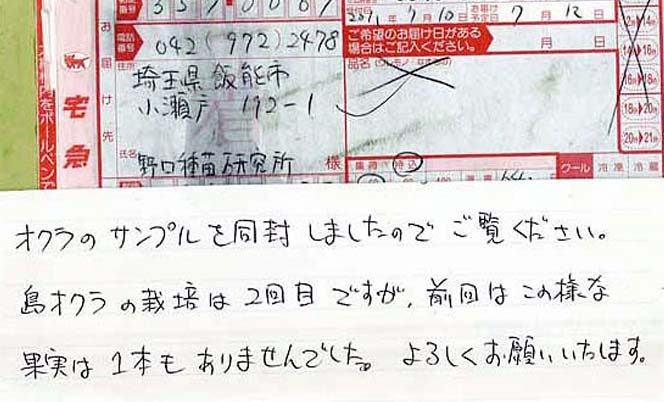 357-0067
受付日 2001年7月10日 お届け予定日 7月12日
お届け先
電話番号 042(972)2478
ご希望のお届け日がある場合はご記入ください。
月 日
住所 埼玉県飯能市
小瀬戸 192-1
品名
氏名 野口種苗研究所 様
宅急
をボールペンで
14時〜16時
16時〜18時
18時〜20時
20時〜21時
クール 冷凍 冷蔵
オクラのサンプルを同封しましたのでご覧ください。
島オクラの栽培は2回目ですが、前回はこの様な
果実は1本もありませんでした。よろしくお願いいたします。